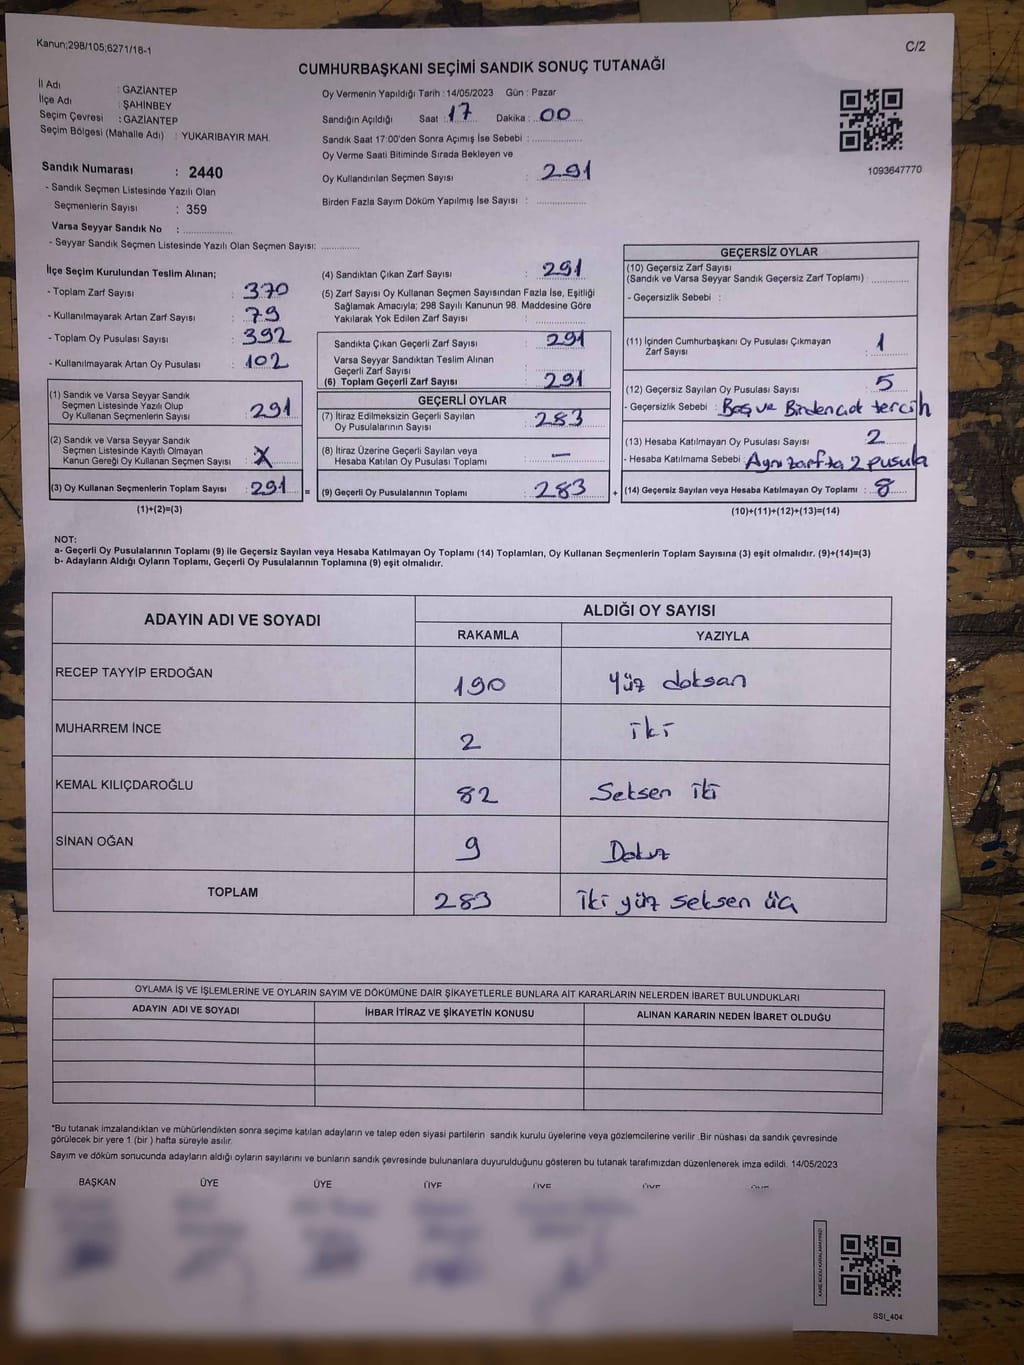 Kanun;298/105;6271/18-1
C/2
CUMHURBAŞKANI SEÇİMİ SANDIK SONUÇ TUTANAĞI
İl Adı : GAZİANTEP
İlçe Adı : ŞAHİNBEY
Seçim Çevresi : GAZİANTEP
Seçim Bölgesi (Mahalle Adı) : YUKARIBAYIR MAH.
Oy Vermenin Yapıldığı Tarih : 14/05/2023 Gün : Pazar
Sandığın Açıldığı Saat : 17 Dakika : 00
Sandık Saat 17:00'den Sonra Açımış İse Sebebi :
Oy Verme Saati Bitiminde Sırada Bekleyen ve
Oy Kullandırılan Seçmen Sayısı : 291
Birden Fazla Sayım Döküm Yapılmış İse Sayısı :
1093647770
Sandık Numarası : 2440
- Sandık Seçmen Listesinde Yazılı Olan
Seçmenlerin Sayısı : 359
Varsa Seyyar Sandık No :
- Seyyar Sandık Seçmen Listesinde Yazılı Olan Seçmen Sayısı:
İlçe Seçim Kurulundan Teslim Alınan;
- Toplam Zarf Sayısı : 370
- Kullanılmayarak Artan Zarf Sayısı : 79
- Toplam Oy Pusulası Sayısı : 392
- Kullanılmayarak Artan Oy Pusulası : 102
(1) Sandık ve Varsa Seyyar Sandık
Seçmen Listesinde Yazılı Olup
Oy Kullanan Seçmenlerin Sayısı : 291
(2) Sandık ve Varsa Seyyar Sandık
Seçmen Listesinde Kayıtlı Olmayan
Kanun Gereği Oy Kullanan Seçmen Sayısı : X
(3) Oy Kullanan Seçmenlerin Toplam Sayısı : 291 =
(1)+(2)=(3)
(4) Sandıktan Çıkan Zarf Sayısı : 291
(5) Zarf Sayısı Oy Kullanan Seçmen Sayısından Fazla İse, Eşitliği
Sağlamak Amacıyla; 298 Sayılı Kanunun 98. Maddesine Göre
Yakılarak Yok Edilen Zarf Sayısı :
Sandıkta Çıkan Geçerli Zarf Sayısı : 291
Varsa Seyyar Sandıktan Teslim Alınan
Geçerli Zarf Sayısı :
(6) Toplam Geçerli Zarf Sayısı : 291
GEÇERLİ OYLAR
(7) İtiraz Edilmeksizin Geçerli Sayılan
Oy Pusulalarının Sayısı : 283
(8) İtiraz Üzerine Geçerli Sayılan veya
Hesaba Katılan Oy Pusulası Toplamı : —
(9) Geçerli Oy Pusulalarının Toplamı : 283 +
GEÇERSİZ OYLAR
(10) Geçersiz Zarf Sayısı
(Sandık ve Varsa Seyyar Sandık Geçersiz Zarf Toplamı) :
- Geçersizlik Sebebi :
(11) İçinden Cumhurbaşkanı Oy Pusulası Çıkmayan
Zarf Sayısı : 1
(12) Geçersiz Sayılan Oy Pusulası Sayısı : 5
- Geçersizlik Sebebi : Boş ve Birden çok tercih
(13) Hesaba Katılmayan Oy Pusulası Sayısı : 2
- Hesaba Katılmama Sebebi : Aynı zarfta 2 pusula
(14) Geçersiz Sayılan veya Hesaba Katılmayan Oy Toplamı : 8
(10)+(11)+(12)+(13)=(14)
NOT:
a- Geçerli Oy Pusulalarının Toplamı (9) ile Geçersiz Sayılan veya Hesaba Katılmayan Oy Toplamı (14) Toplamları, Oy Kullanan Seçmenlerin Toplam Sayısına (3) eşit olmalıdır. (9)+(14)=(3)
b- Adayların Aldığı Oyların Toplamı, Geçerli Oy Pusulalarının Toplamına (9) eşit olmalıdır.
ADAYIN ADI VE SOYADI ALDIĞI OY SAYISI
RAKAMLA YAZIYLA
RECEP TAYYİP ERDOĞAN 190 Yüz doksan
MUHARREM İNCE 2 iki
KEMAL KILIÇDAROĞLU 82 Seksen iki
SİNAN OĞAN 9 Dokuz
TOPLAM 283 iki yüz seksen üç
OYLAMA İŞ VE İŞLEMLERİNE VE OYLARIN SAYIM VE DÖKÜMÜNE DAİR ŞİKAYETLERLE BUNLARA AİT KARARLARIN NELERDEN İBARET BULUNDUKLARI
ADAYIN ADI VE SOYADI İHBAR İTİRAZ VE ŞİKAYETİN KONUSU ALINAN KARARIN NEDEN İBARET OLDUĞU
*Bu tutanak imzalandıktan ve mühürlendikten sonra seçime katılan adayların ve talep eden siyasi partilerin sandık kurulu üyelerine veya gözlemcilerine verilir .Bir nüshası da sandık çevresinde
görülecek bir yere 1 (bir ) hafta süreyle asılır.
Sayım ve döküm sonucunda adayların aldığı oyların sayılarını ve bunların sandık çevresinde bulunanlara duyurulduğunu gösteren bu tutanak tarafımızdan düzenlenerek imza edildi. 14/05/2023
BAŞKAN ÜYE ÜYE ÜYE ÜYE ÜYE ÜYE
SSI_404